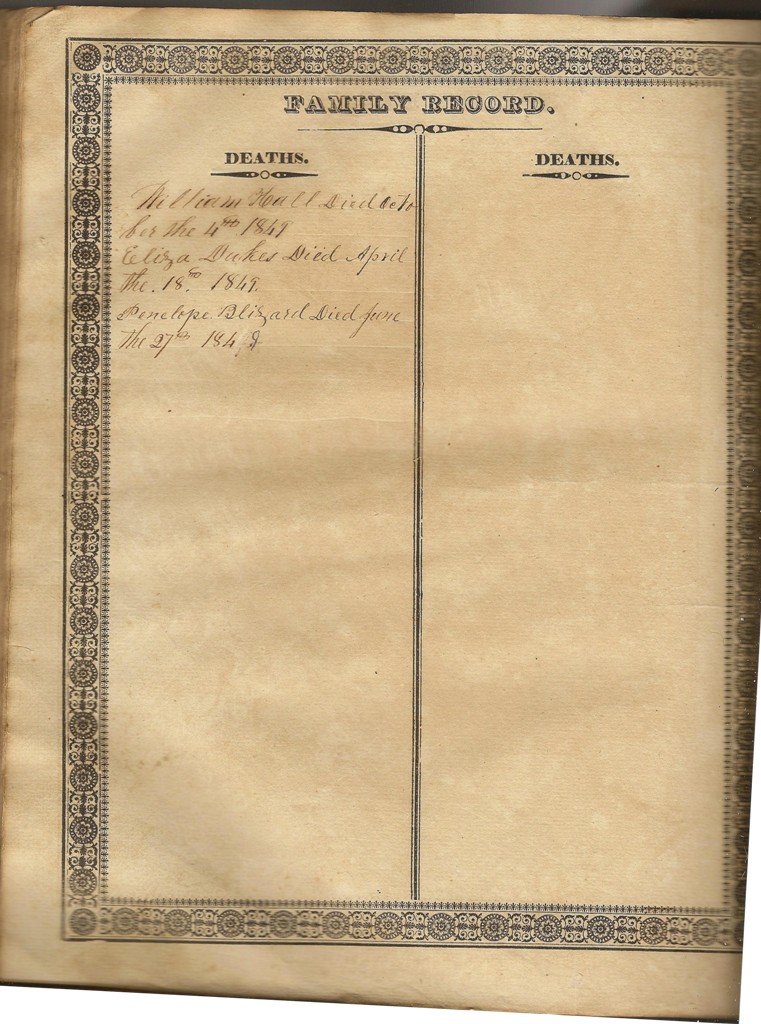 FAMILY RECORD.
DEATHS.
William Hall Died Octo
ber the 4th 1849
Eliza Dukes Died April
the. 18.th 1849.
Penelope Blizard Died June
the 27th 1849
DEATHS.